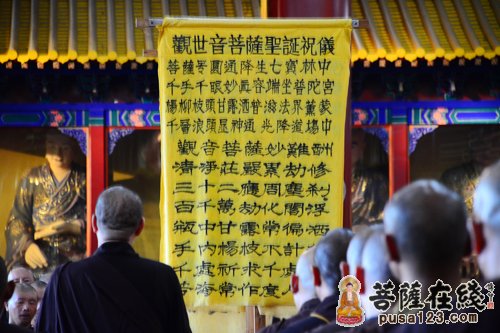 觀世音菩薩聖誕祝儀
菩薩号圓通降生七寶林中
千手千眼妙真容端坐普陀宮
楊柳枝頭甘露洒普滋法界薰蒙
千層浪頭顯神通光降道場中
觀音菩薩妙難酬
清淨莊嚴累劫修
三十二應周塵剎
百千萬劫化閻浮
瓶中甘露常遍洒
手內楊枝不計秋
千處祈求千處應
苦海常作度人舟
菩薩在线
pusa123.com